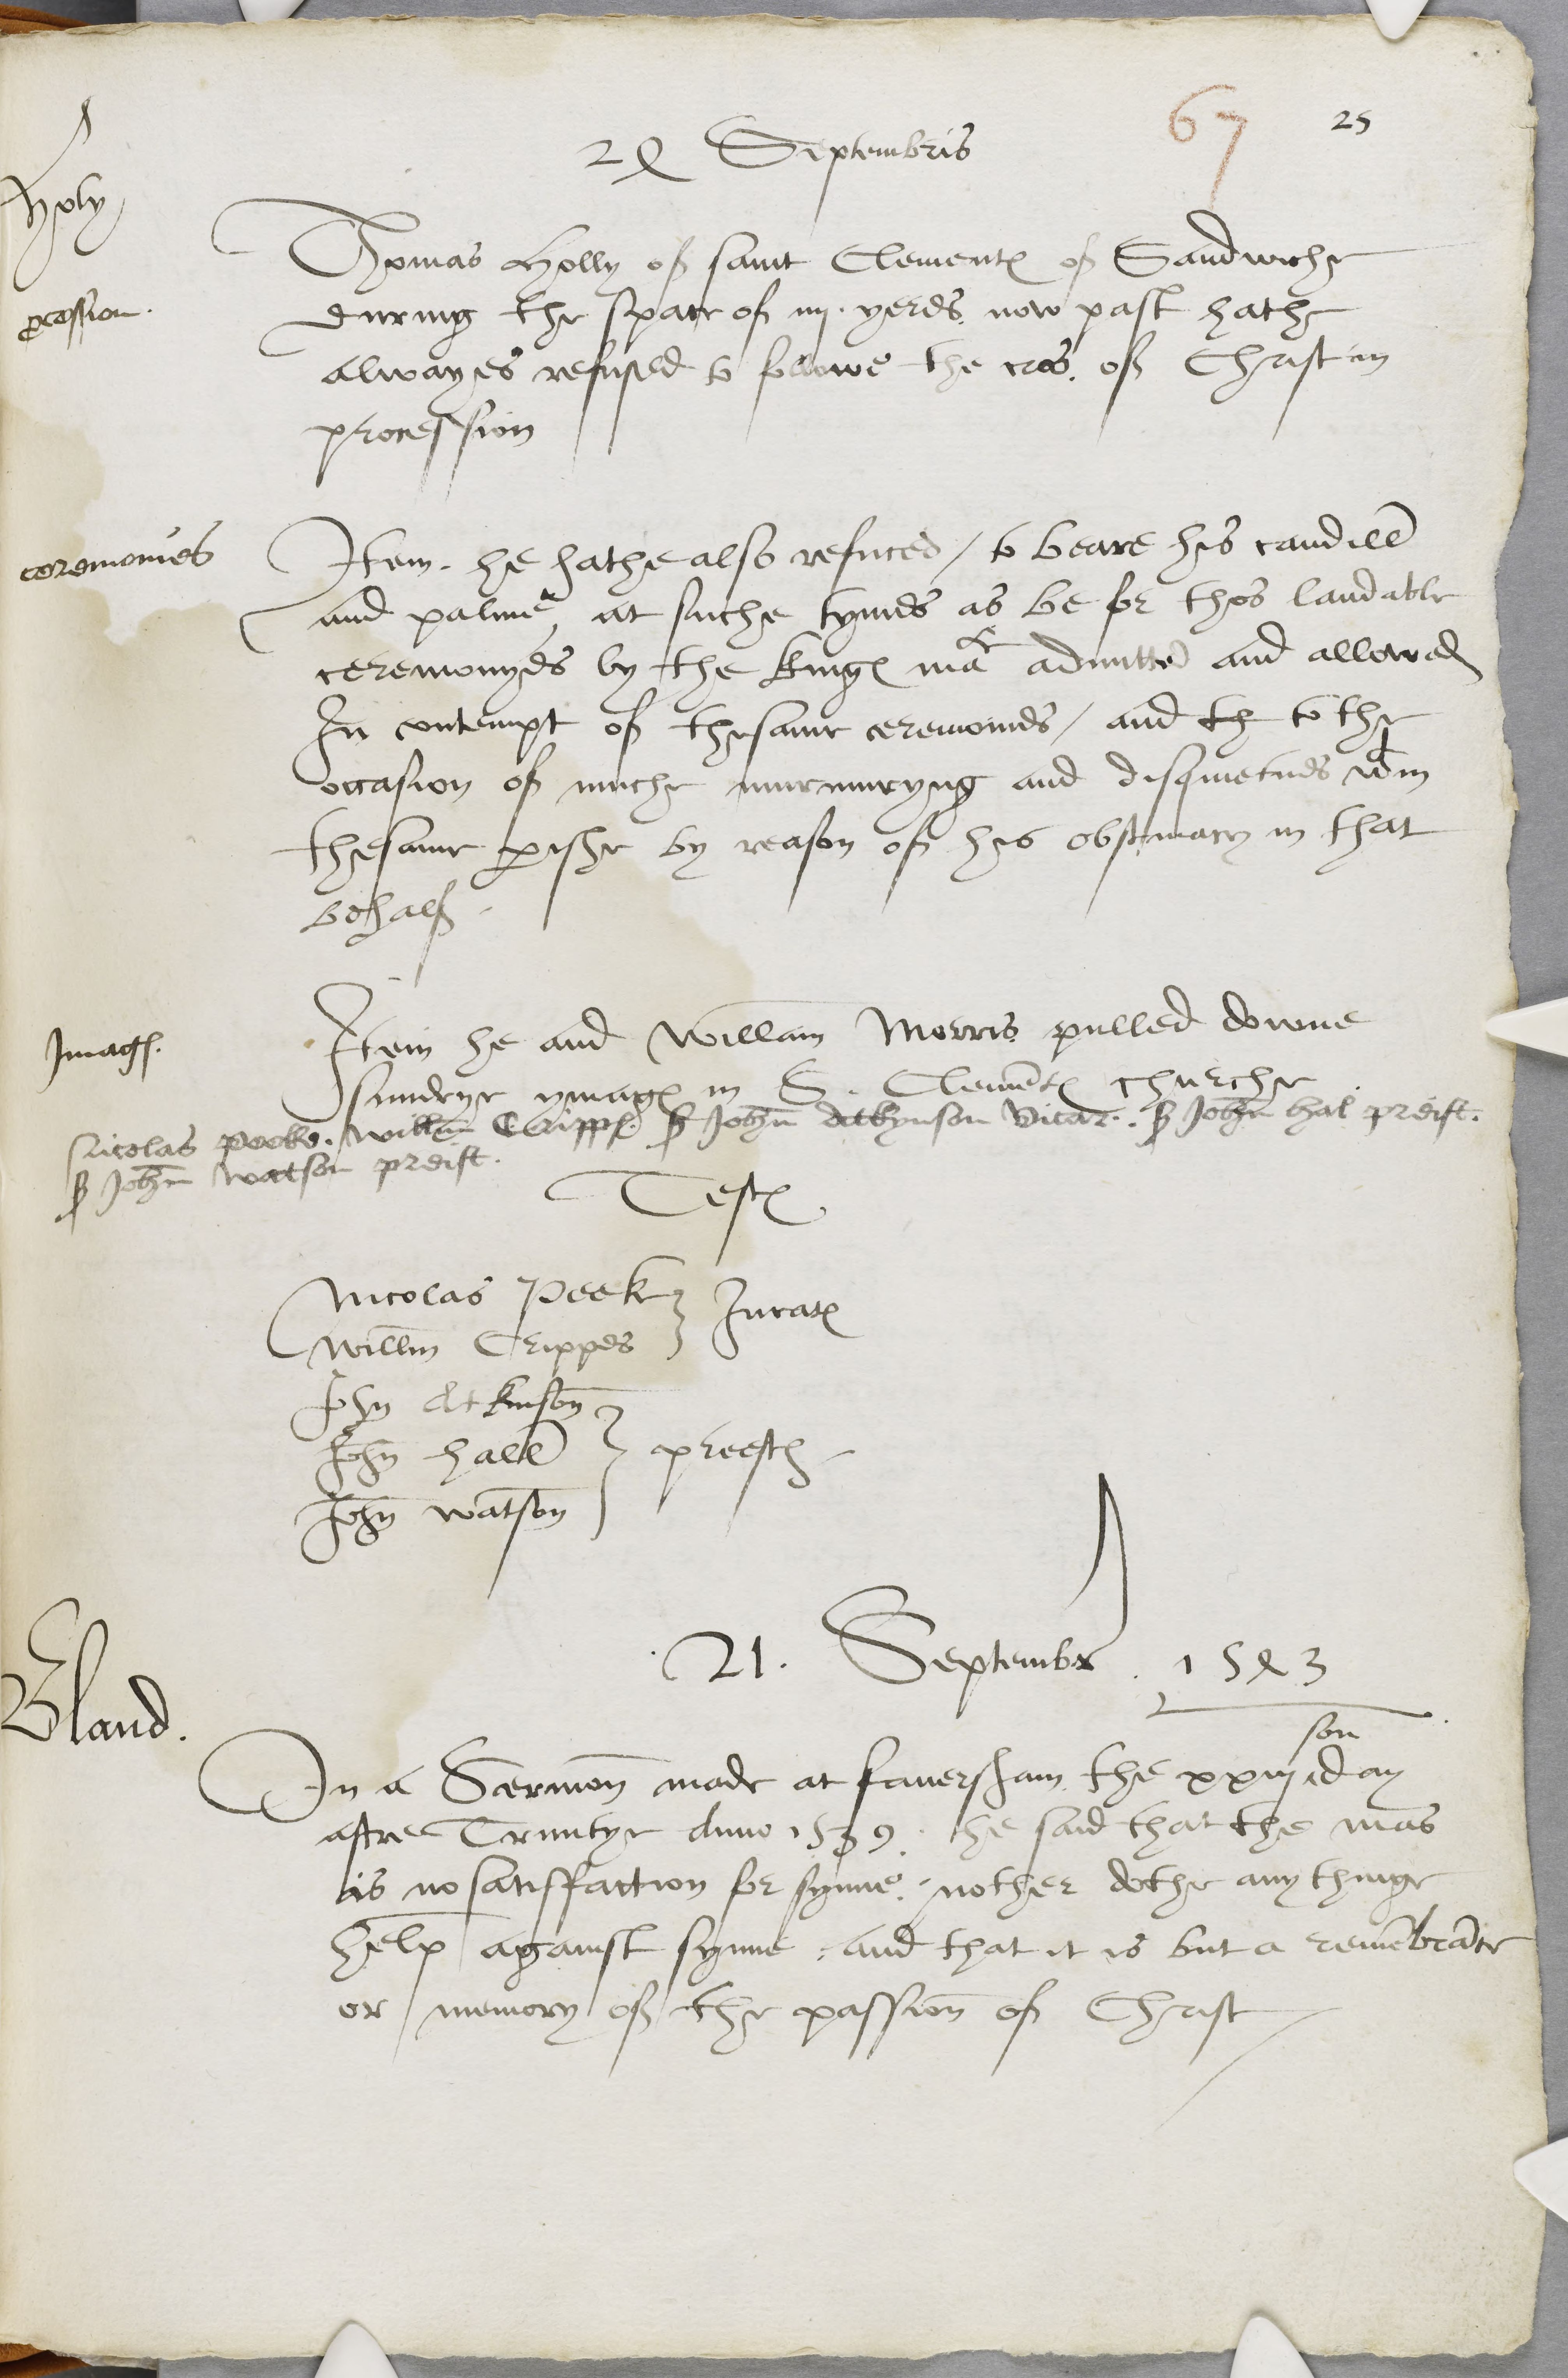 67 25
24 Septembris
Holy
Thomas Holly off saint Clementes off Sandwiche
procession.
during the space off iij. yeres now past hathe
alwayes refused to followe the cros off Christ in
procession
ceremonies
Item. he hathe also refuced / to beare his candill
and palme, at suche tymes as be for thos laudable
ceremonyes by the kinges matie admitted and allowed
In contempt off thesame ceremonies / and th to the
occasion off muche murmuryng and disquietnes wtin
thesame pishe by reason off his obstinacy in that
behalff.
Images.
Item he and Willam Morris pulled downe
sundrye ymages in S. Clementes churche
Nicolas peeke. willm Crippes. Sr John Atkynson Vicar. Sr John Hal preist.
Sr John Watson preist.
Testes
Nicolas Peeke
Jurates
Willm Crippes
John Atkinson
John Hall
preestes
John Watson
21. Septembr. 1543
Bland.
son
In a Sermon made at faversham the xxiij day
aftre Trinitye Anno 1539. he said that the mas
is no satisffaction for synne, nother dothe any thinge
help against synne, and that it is but a remembrance
or memory off the passion off Christ